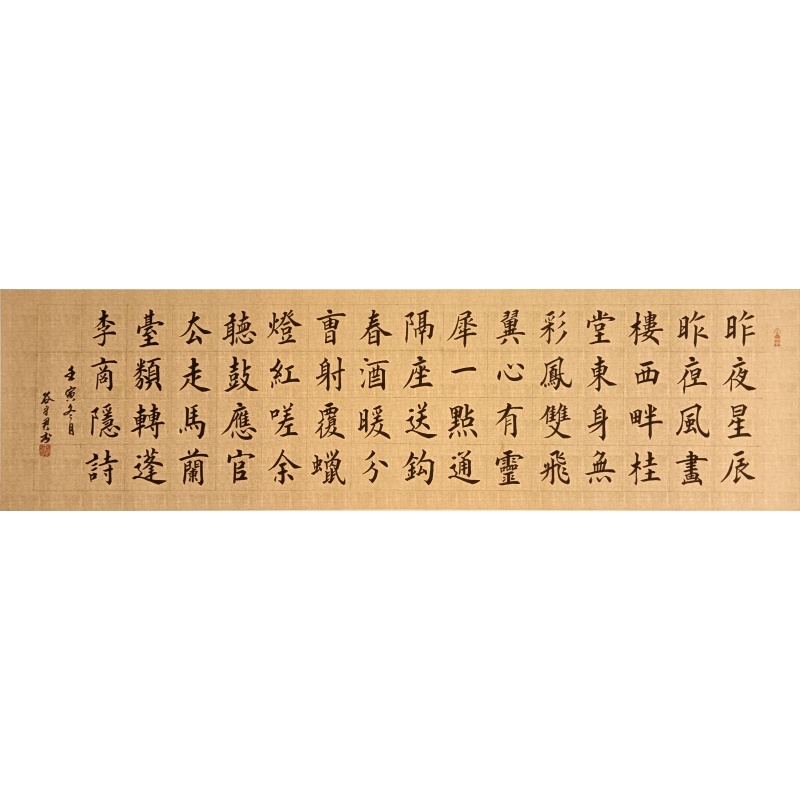 昨夜星辰
昨夜風畫
樓西畔桂
堂東身無
彩鳳雙飛
翼心有靈
犀一點通
隔座送鈎
春酒暖分
曹射覆蠟
燈紅嗟余
聽鼓應官
去走馬蘭
臺類轉蓬
李商隱詩
壬寅冬月